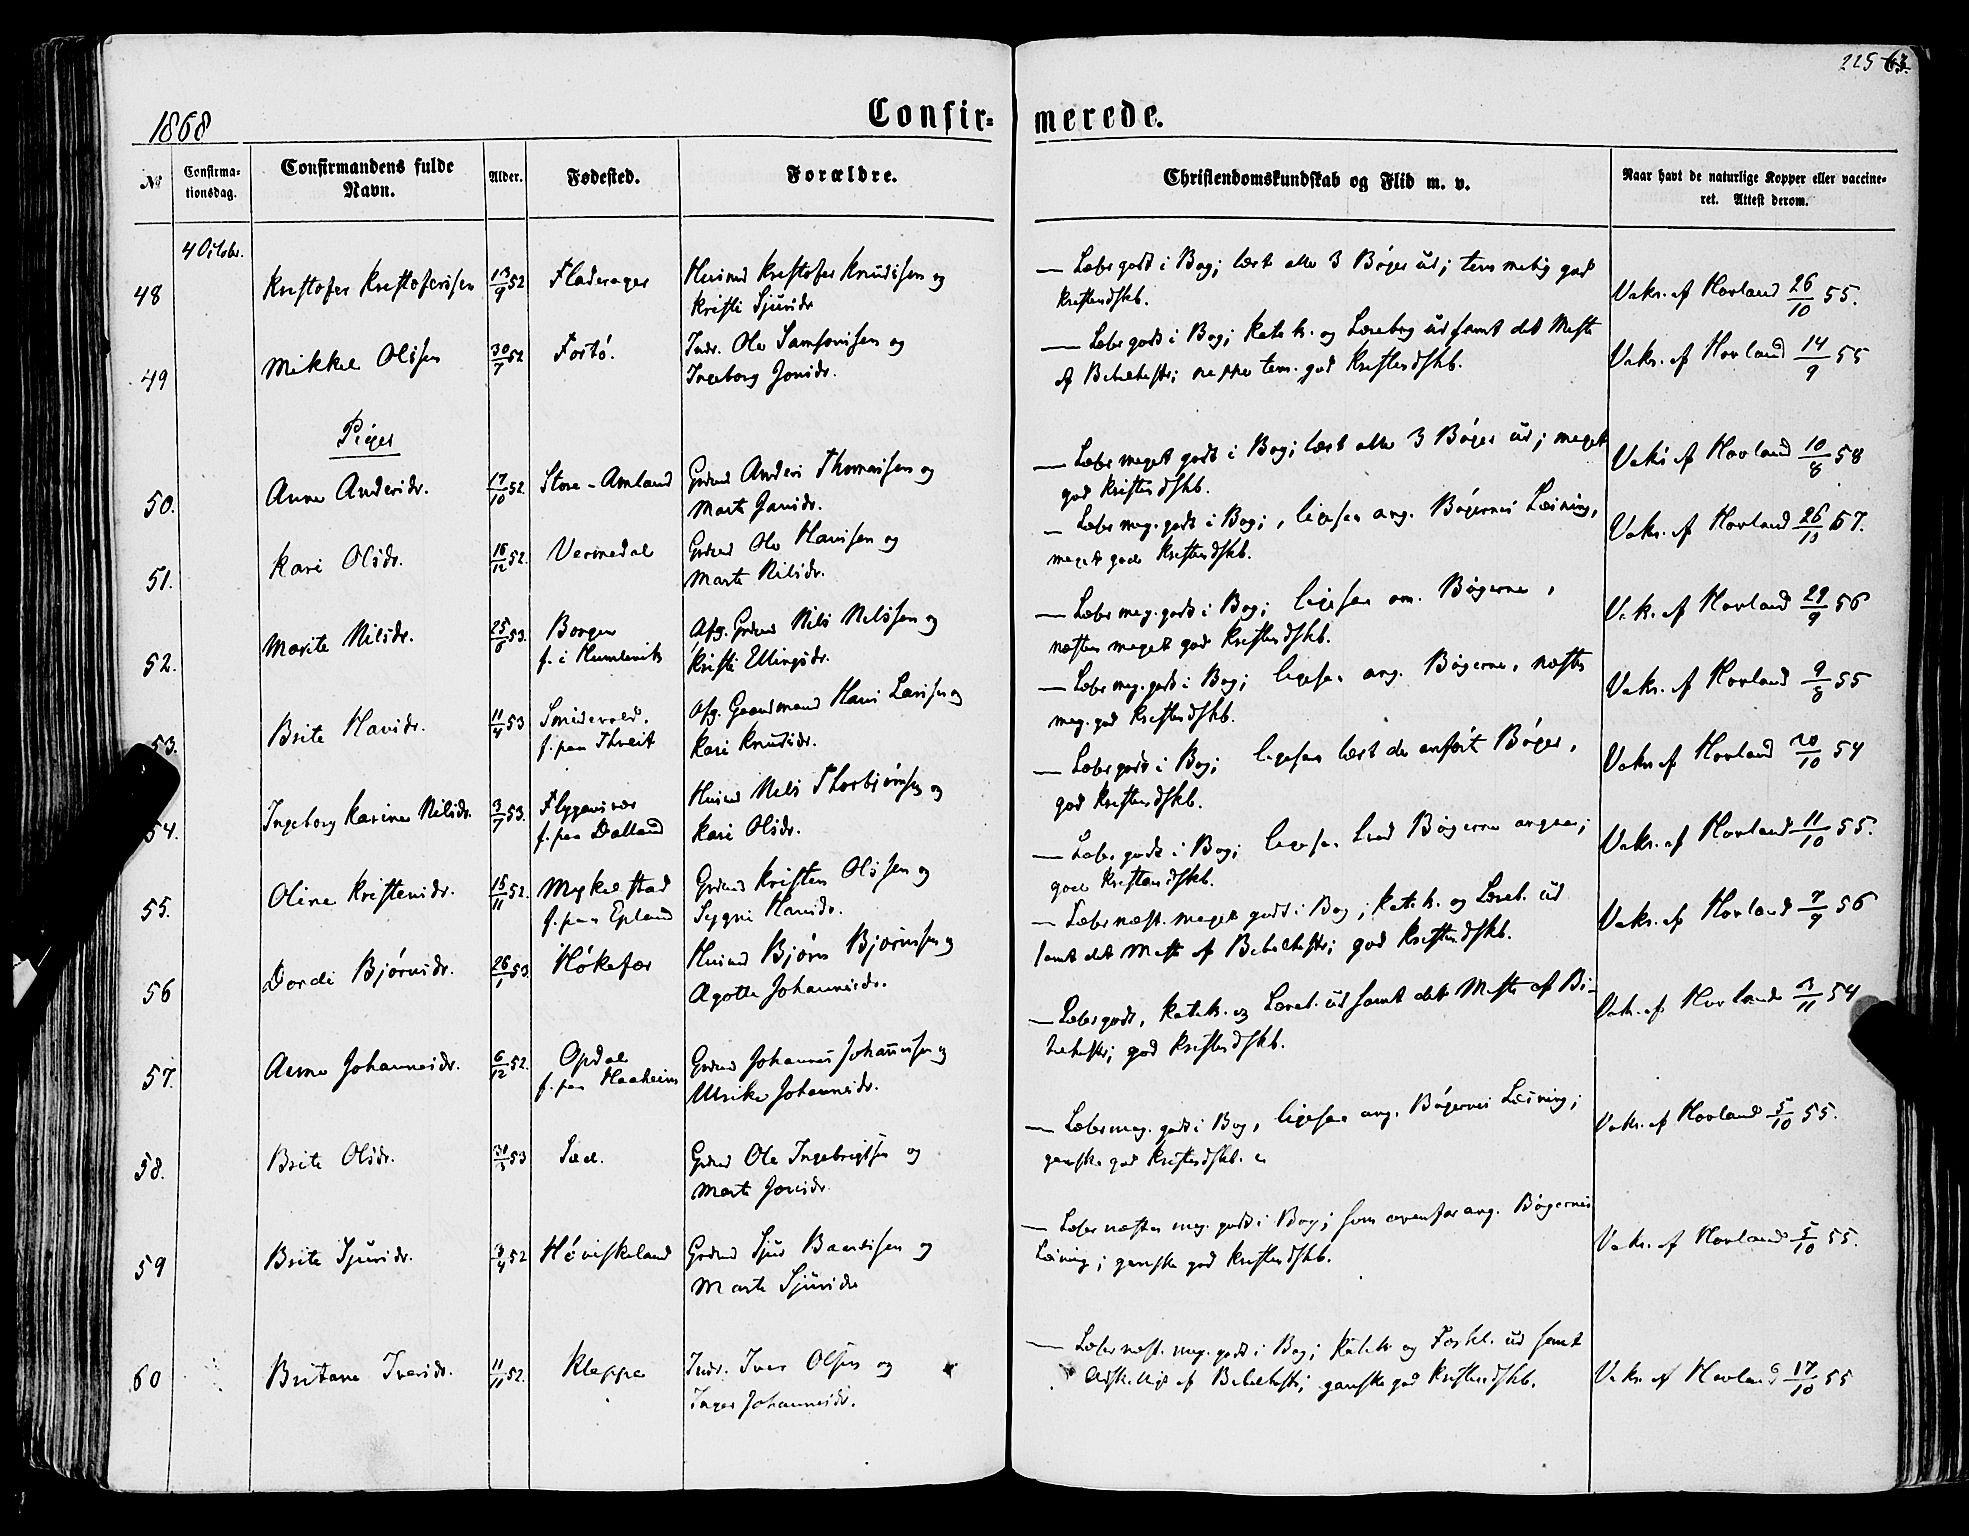 225
1868
Confir- merede.
No
Confirma-
tionsdag.
Confirmandens fulde
Navn.
Alder.
Fødested.
Forældre.
Christendomskundskab og Flid m. v.
Naar havt de naturlige Kopper eller vaccine-
ret. Attest derom.
4 Octobr.
48 Kristofer Kristofersen 13/9 52 Fladerager Husmd Kristofer Knudssen og
Kristi Sjursdr
— Læser godt i Bog; læst alle 3 Bøger ud; tem metig god
Kristendskb.
Vaks. af Hovland 26/10 55.
49 Mikkel Olssen 30/7 52 Fostö. Indr. Ole Samsonssen og
Ingeborg Jonsdr.
— Læser godt i Bog; Katek. og Lærebog ud samt det Meste
af Bibelhistr; neppe tem. god Kristendskb.
Vaks. af Hovland 14/9 55
Piger
50. Anna Andersdr. 17/10 52. Store-Amland Grdmd Anders Thomassen og
Marta Jansdr.
— Læser meget godt i Bog; læst alle 3 Bøger ud; meget
god Kristendskb.
Vaks af Hovland 10/8 58
51. Kari Olsdr. 16/12 52. Vermedal Grdmd Ole Hanssen og
Marta Nilsdr.
— Læser meg. godt i Bog;, ligesaa ang. Bøgernes Læsning,
meget god Kristendskb.
Vaks. af Hovland 26/10 57.
52. Marite Nilsdr. 25/8 53. Borgen
f. i Humlevik
Afg. Grdmd Nils Nilssen og
Kristi Ellingsdr.
— Læser meg. godt i Bog; ligesaa om Bøgerne,
næsten meget god Kristendskb.
Vak. af Hovland 29/9 56
53. Brite Hansdr. 11/4 53 Smidevold.
f. paa Threit
Afg. Gaardmand Hans Larssen og
Kari Knudsdr.
— Læser meg. godt i Bog; ligesaa ang. Bøgerne, næsten
meg. god Kristendskb.
Vaks. af Hovland 9/8 55
54. Ingeborg Karina Nilsdr. 3/7 53. Flygansvær
f. paa Dalland
Husmd Nils Thorbjørnsen og
Kari Olsdr.
— Læser godt i Bog; ligesaa læst de anførte Bøger,
god Kristendskb.
Vaks af Hovland 20/10 54
55. Oline Kristensdr. 15/11 52. Myklestad
f. paa Epland
Grdmd Kristen Olssen og
Sygni Hansdr.
— Læser godt i Bog; ligesaa hvad Bøgerne angaar;
god Kristendskb.
Vaks. af Hovland 11/10 55.
56 Dordi Bjørnsdr. 26/1 53. Høkefær Husmd Bjørn Bjørnssen og
Agotta Johannesdr.
— Læser næst. meget godt i Bog; Katek. og Læreb. ud
samt det Meste af Bibelhistr; god Kristendskb.
Vaks. af Hovland 7/9 56
57. Anna Johannesdr. 6/12 52. Opdal
f. paa Haaheim
Grdmd Johannes Johannessen og
Ulrika Johannesdr.
— Læser godt, Katek. og Læreb. ud samt det Meste af Bi-
belhistr; god Kristendskb.
Vak. af Hovland 3/11 54
58. Brite Olsdr. 31/5 53 Sæd. Grdmd Ole Ingebrigtsen og
Marta Jonsdr.
— Læser meg. godt i Bog, ligesaa ang. Bøgernes Læsning;
ganske god Kristendskb.
Vaks. af Hovland 5/10 55.
59 Brite Sjursdr. 3/4 52 Høviskeland Grdmd Sjur Baardssen og
Marta Sjursdr
— Læser næsten meg. godt i Bog; som ovenfor ang. Bøgernes
Læsning; ganske god Kristendskb.
Vaks. af Hovland 5/10 55.
60 Britana Iversdr. 11/11 52. Kleppe Indr. Iver Olsen og
Inger Johannesdr.
— Læser næst. meg. godt i Bog; Katek og Forkl. ud samt
Adskilligt af Bibelhistr; ganske god Kristendskb.
Vaks af Hovland 17/10 55